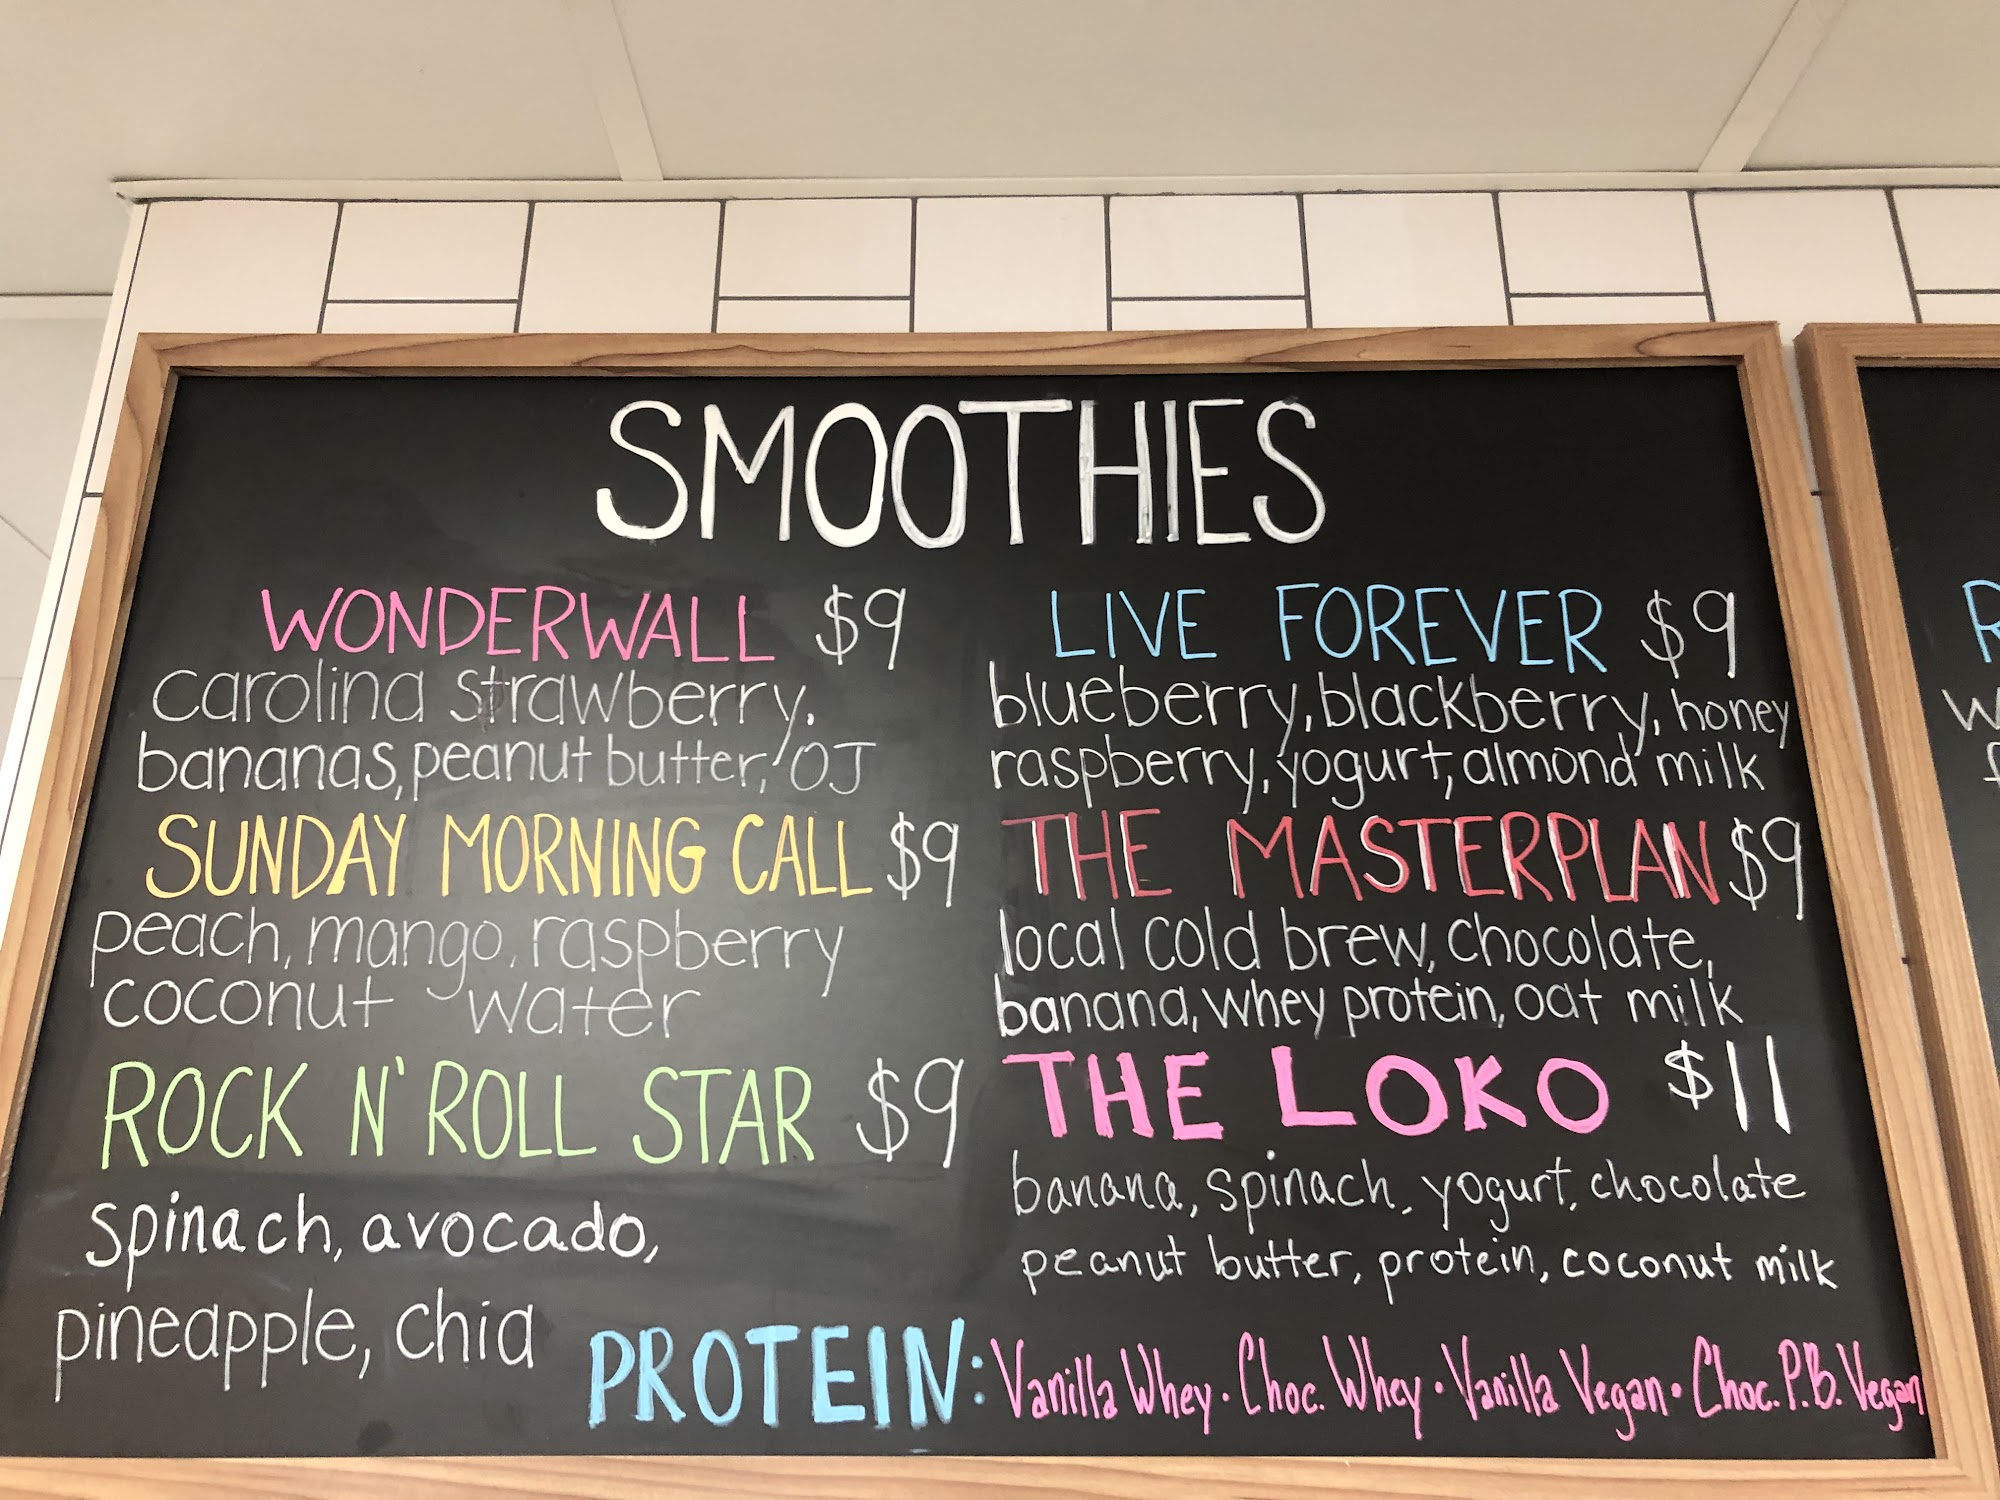 SMOOTHIES
WONDERWALL $9
carolina strawberry,
bananas, peanut butter, OJ
SUNDAY MORNING CALL $9
peach, mango, raspberry
coconut water
ROCK N' ROLL STAR $9
spinach, avocado,
pineapple, chia
LIVE FOREVER $9
blueberry, blackberry, honey
raspberry, yogurt, almond milk
THE MASTERPLAN $9
local cold brew, chocolate,
banana, whey protein, oat milk
THE LOKO $11
banana, spinach, yogurt, chocolate
peanut butter, protein, coconut milk
PROTEIN: Vanilla Whey · Choc. Whey · Vanilla Vegan · Choc. P.B. Vegan